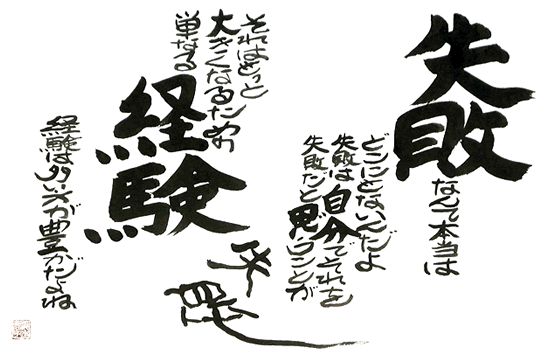 失敗
なんて本当は
どこにもないんだよ
失敗は自分でそれを
失敗だと思うことが
失敗
それはもっと
大きくなるための
単なる
経験
経験は多い方が豊かだよね